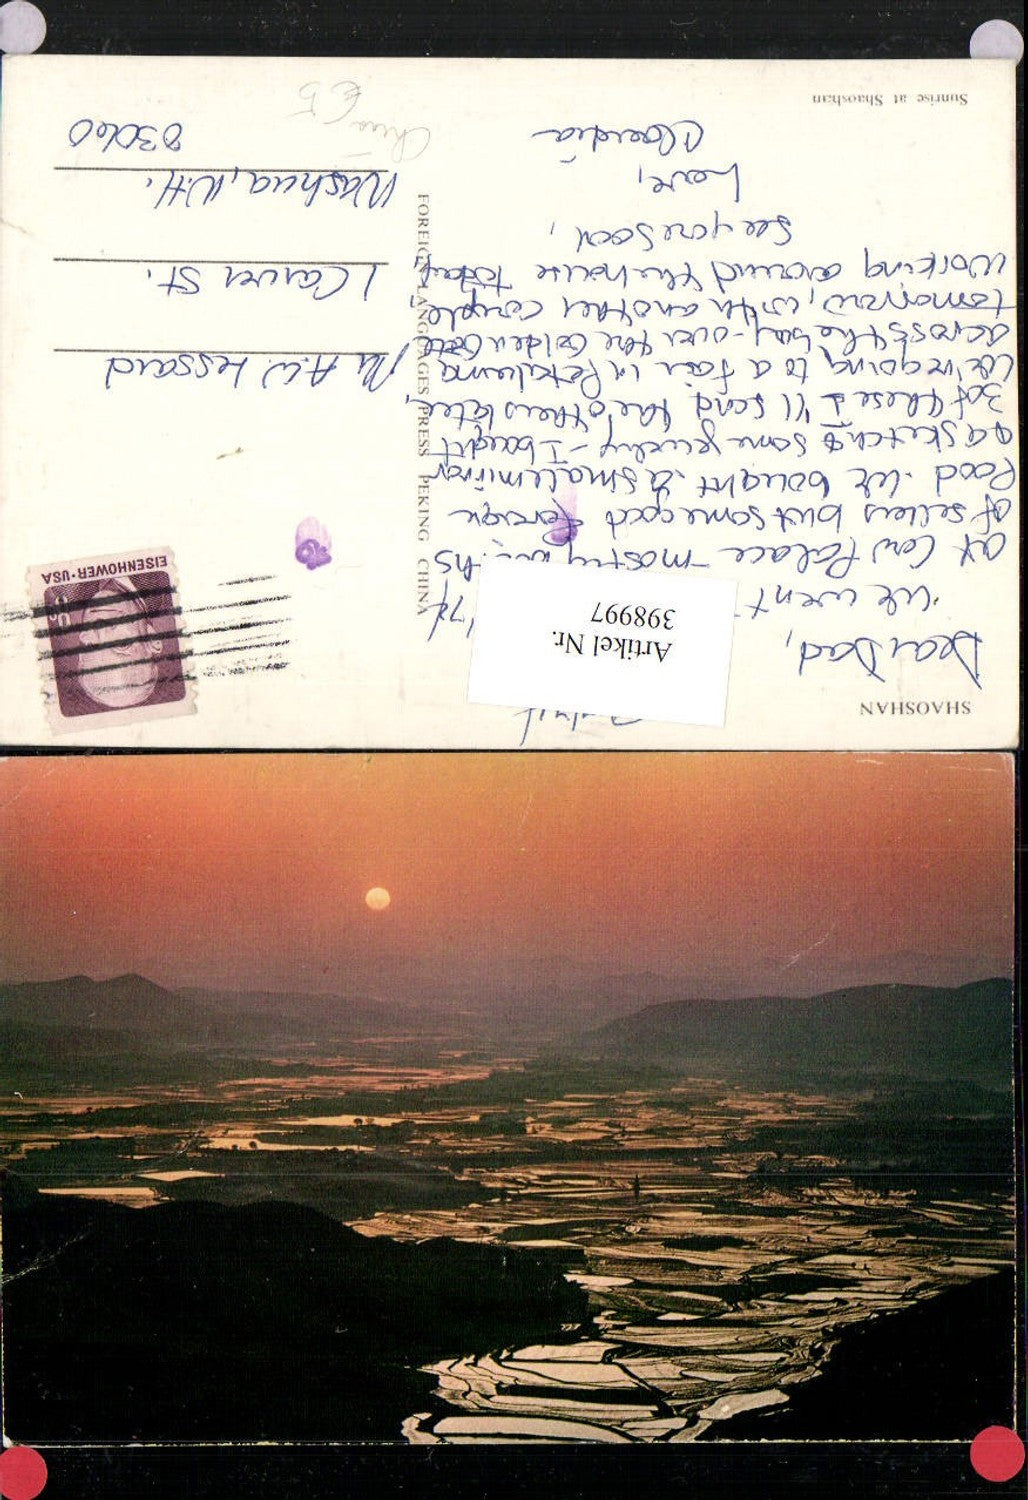 SHAOSHAN
Dear Dad,
We went
at Cow Palace - mostly
of sellers but some good foreign
food. We bought a small mirror
a sketch & some jewelry - I bought
3 of these I'll send the others later.
We're going to a fair in Petaluma
across the bay - over the Golden Gate
tomorrow, with another couple
Working around the house today
See you soon,
Love,
Claudia
Sunrise at Shaoshan
Artikel Nr.
398997
FOREIGN LANGUAGES PRESS PEKING CHINA
EISENHOWER·USA
Mr A.W. Lessard
1 Carver St.
Nashua, N.H.
03060
China
€5